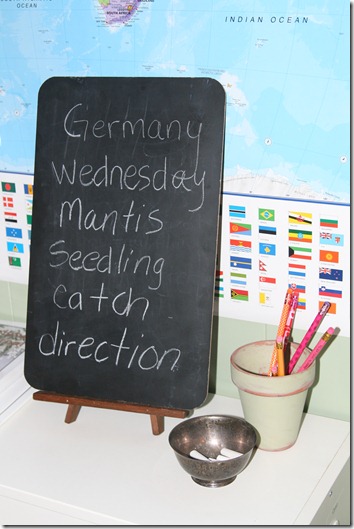 INDIAN OCEAN
Germany
Wednesday
Mantis
Seedling
catch
direction